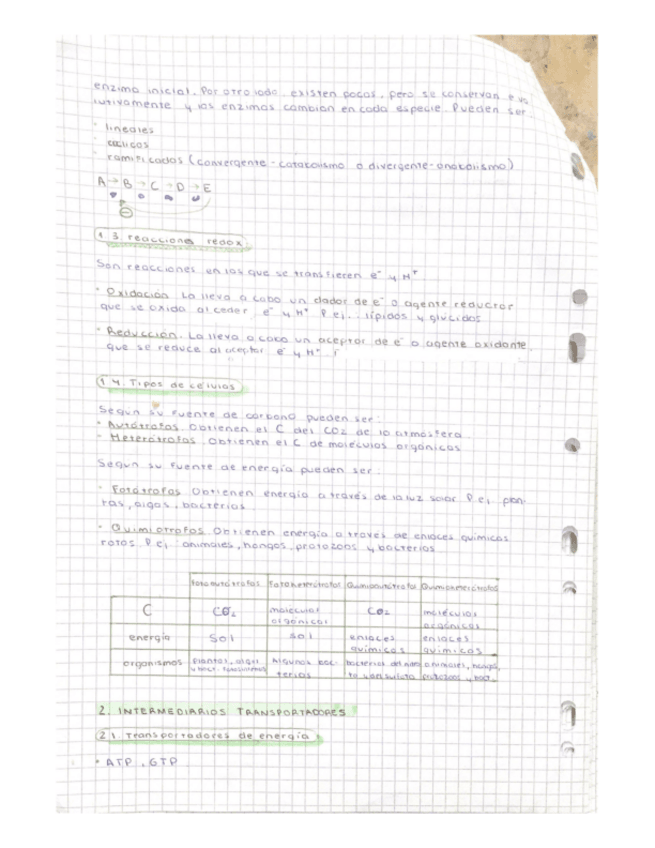 enzima inicial. Por otro lado, existen pocas, pero se conservan evo
lutivamente y las enzimas cambian en cada especie. Pueden ser
· lineales
· cíclicas
· ramificadas (convergente-catabolismo o divergente-anabolismo)
A → B → C → D → E
1.3. reacciones redox
Son reacciones en las que se transfieren e⁻ y H⁺
· Oxidación. La lleva a cabo un dador de e⁻ o agente reductor
que se oxida al ceder e⁻ y H⁺ P. ej.. lípidos y glúcidos
· Reducción. La lleva a cabo un aceptor de e⁻ o agente oxidante,
que se reduce al aceptar e⁻ y H⁺
1.4. Tipos de células
Según su fuente de carbono pueden ser:
· Autótrofos. Obtienen el C del CO2 de la atmósfera
· Heterótrofos. Obtienen el C de moléculas orgánicas
Según su fuente de energía pueden ser:
· Fotótrofos. Obtienen energía a través de la luz solar P. ej. plan-
tas, algas, bacterias.
· Quimiótrofos. Obtienen energía a través de enlaces químicos
rotos P. ej.: animales, hongos, protozoos y bacterias
Fotoautótrofos Fotoheterótrofos Quimioautótrofos Quimioheterótrofos
C CO2 moléculas orgánicas CO2 moléculas orgánicas
energía Sol sol enlaces químicos enlaces químicos
organismos plantas, algas y bact. Algunas bacterias bacterias animales, hongos, protozoos y bact.
2. INTERMEDIARIOS TRANSPORTADORES
2.1. Transportadores de energía
· ATP, GTP